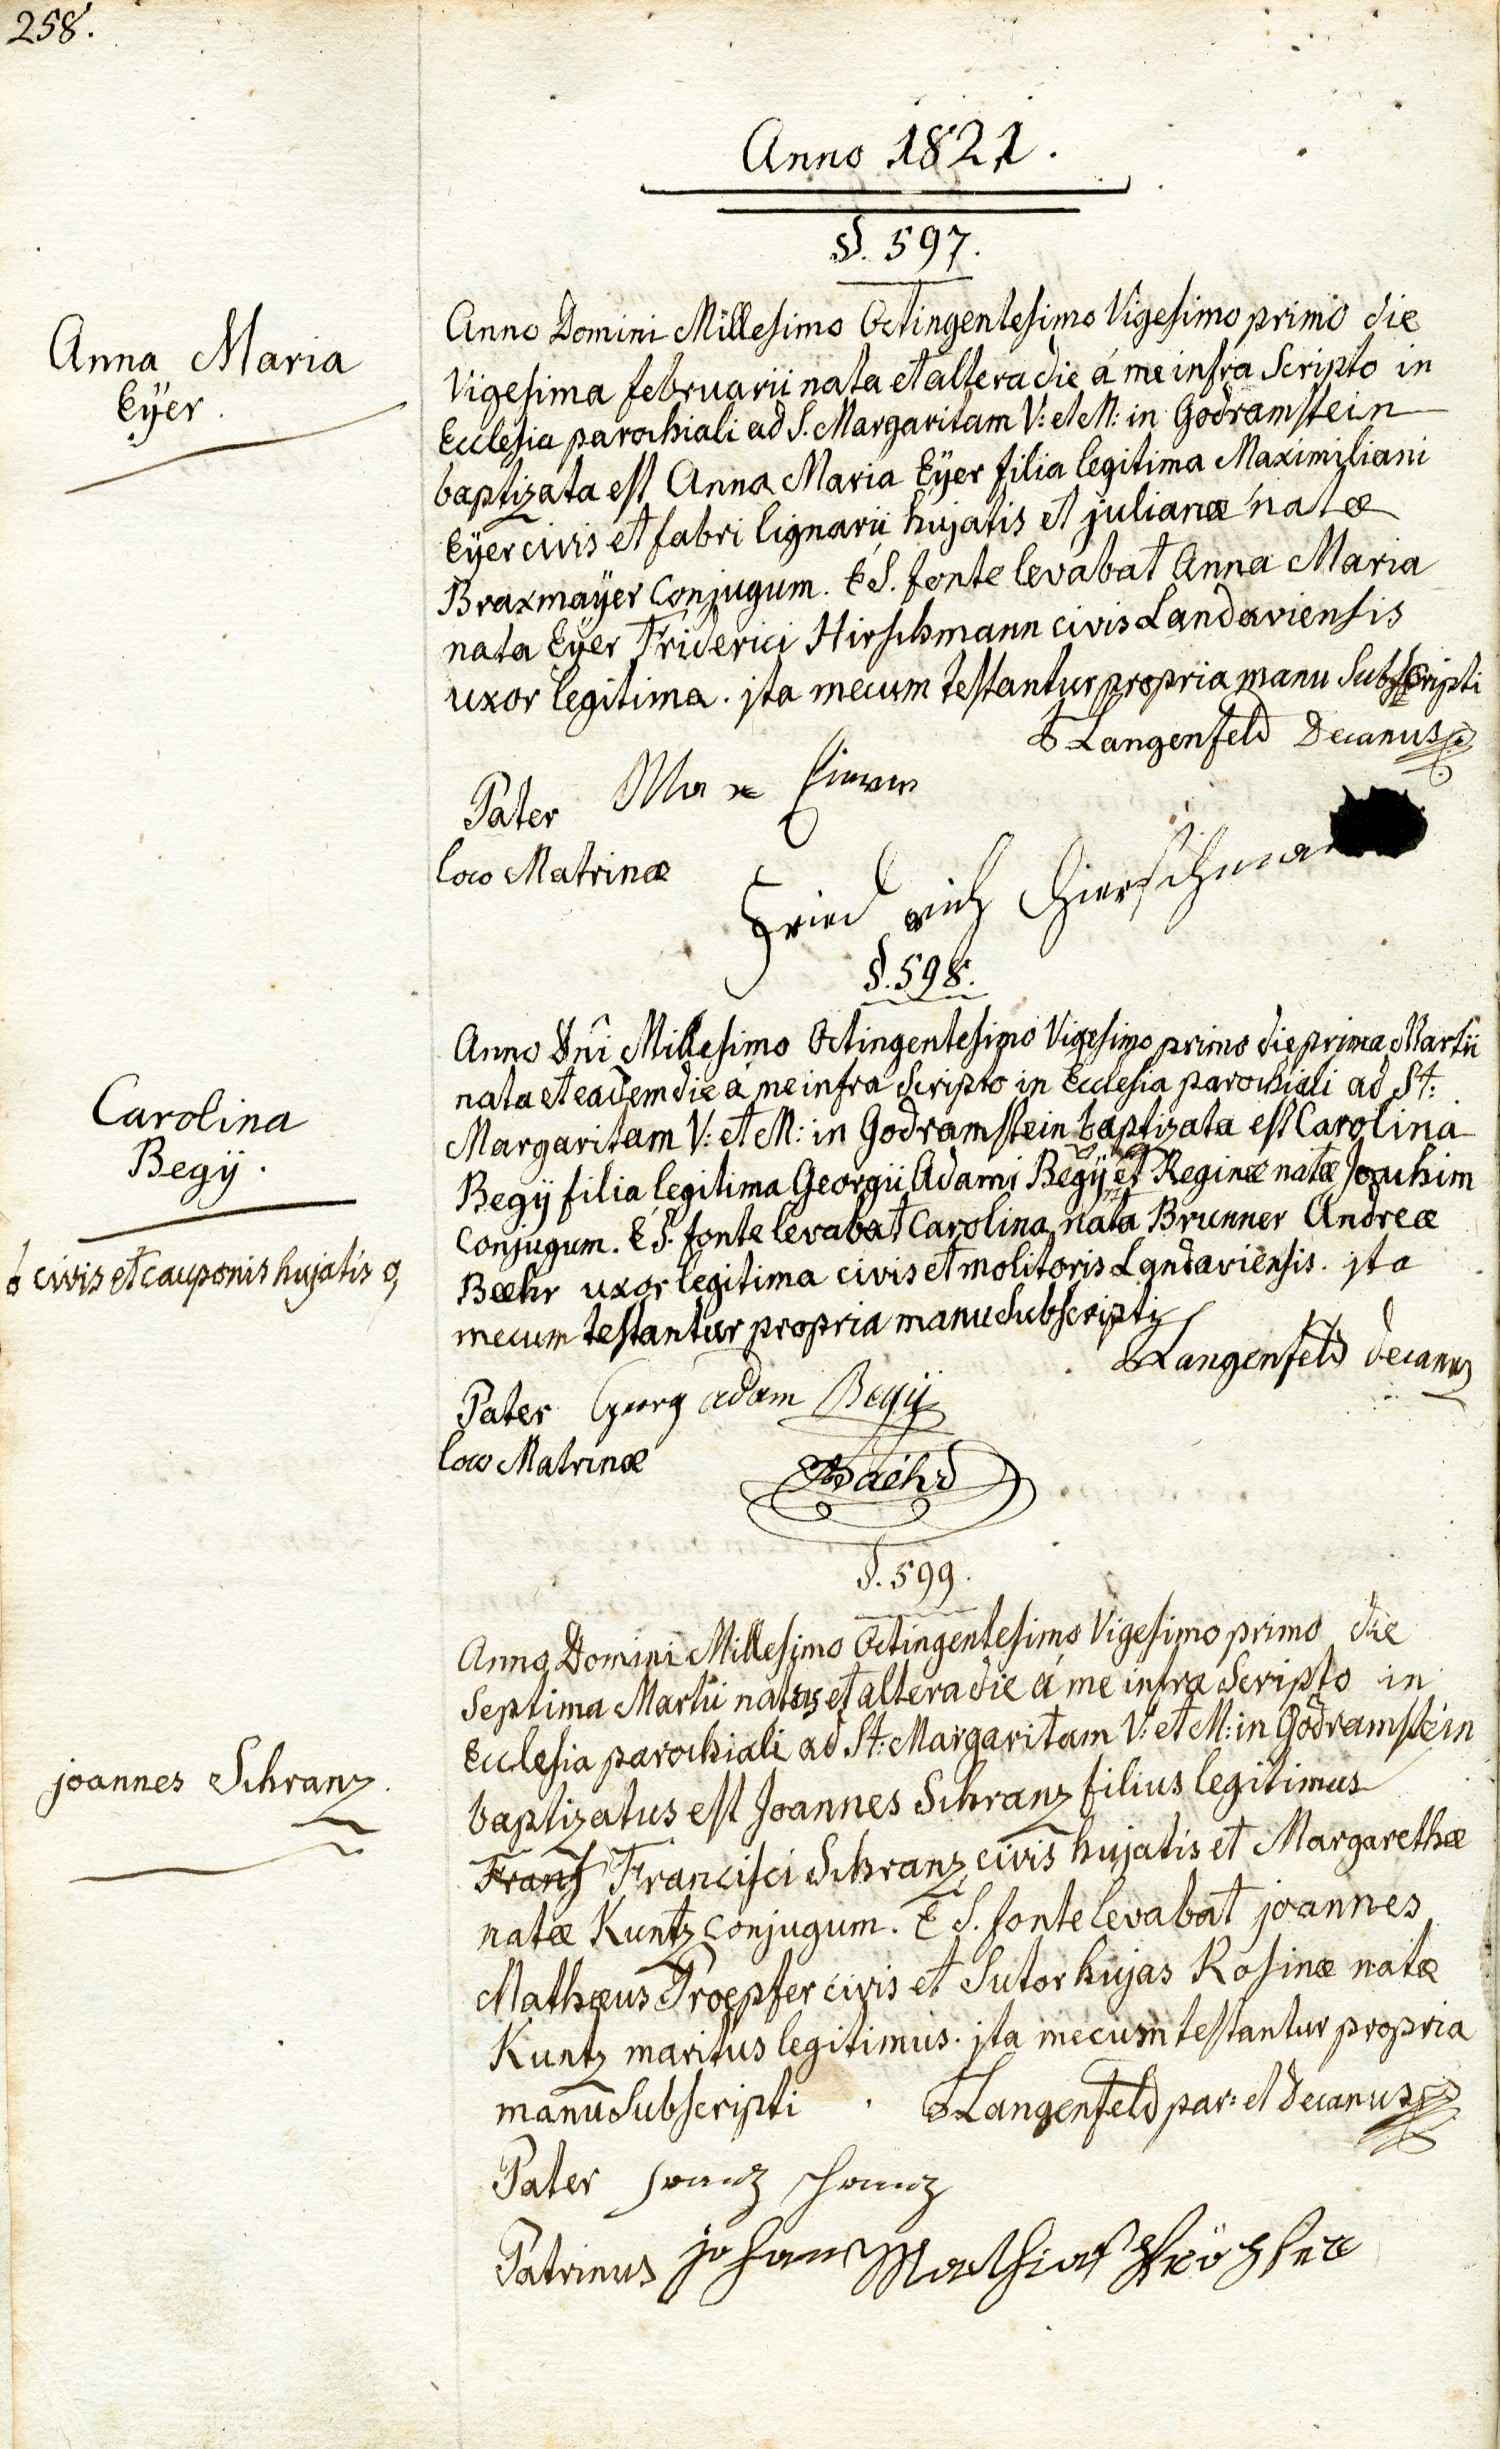 258.
Anno 1821.
§. 597.
Anna Maria
Eÿer.
Anno Domini Millesimo Octingentesimo Vigesimo primo die
Vigesima februarii nata et altera die á me infra Scripto in
Ecclesia parochiali ad S. Margaritam V: et M: in Godramstein
baptizata est Anna Maria Eÿer filia legitima Maximiliani
Eÿer civis et fabri lignarii hujatis et julianæ natæ
Braxmaÿer Conjugum. E S. fonte levabat Anna Maria
nata Eÿer Friderici Hirschmann civis Landaviensis
uxor legitima. jta mecum testantur propria manu Subscripti
Langenfeld Decanus
Pater Max
loco Matrinæ
§. 598.
Carolina
Begÿ.
civis et cauponis hujatis
Anno Dni Millesimo Octingentesimo Vigesimo primo die prima Martii
nata et eadem die á me infra Scripto in Ecclesia parochiali ad St:
Margaritam V: et M: in Godramstein baptizata est Carolina
Begÿ filia legitima Georgii Adami Begÿ et Reginæ natæ Joachim
Conjugum. E S. fonte levabat Carolina nata Brunner Andreæ
Bæhr uxor legitima civis et molitoris Landaviensis. jta
mecum testantur propria manu Subscripti
Langenfeld decanus
Pater Georg adam Begÿ
loco Matrinæ
§. 599.
joannes Schranz.
Anno Domini Millesimo Octingentesimo Vigesimo primo die
Septima Martii natus et altera die á me infra Scripto in
Ecclesia parochiali ad St: Margaritam V: et M: in Godramstein
baptizatus est Joannes Schranz filius legitimus
Francisci Schranz civis hujatis et Margarethæ
natæ Kuntz Conjugum. E S. fonte levabat joannes
Mathæus Proepfer civis et Sutor hujas Rosinæ natæ
Kuntz maritus legitimus. jta mecum testantur propria
manu Subscripti Langenfeld par: et decanus
Pater franz schranz
Patrinus johans Mathias